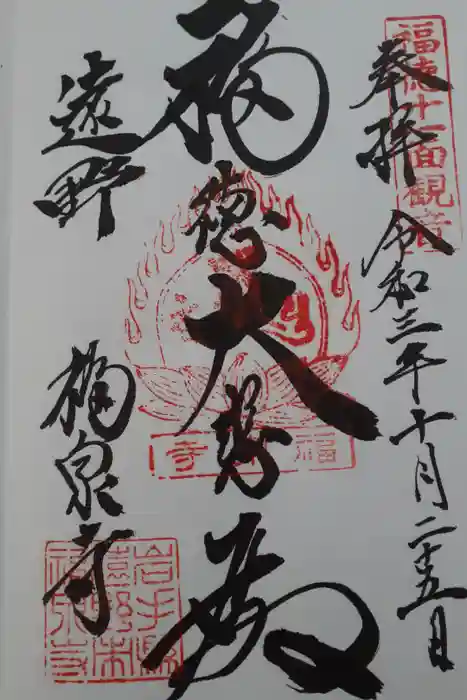 奉拝
令和三年十月二十五日
福徳十一面観音
福徳大悲殿
遠野
福泉寺
岩手縣
遠野市
福泉寺